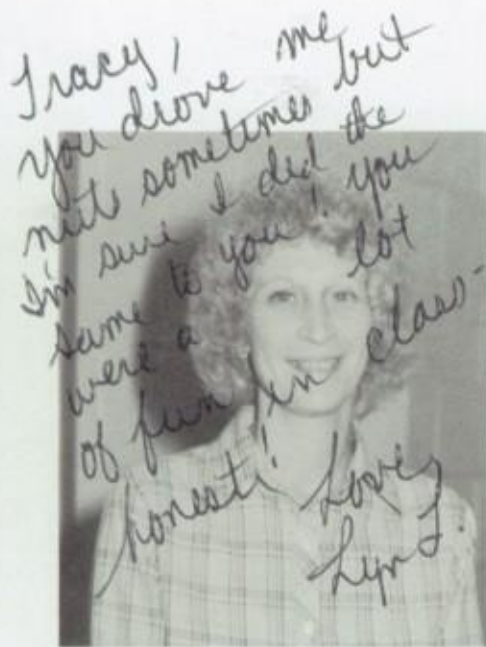 Tracy,
you drove me
nuts sometimes but
I'm sure I did the
same to you! you
were a lot
of fun in class-
honest! Love,
Lyn L.